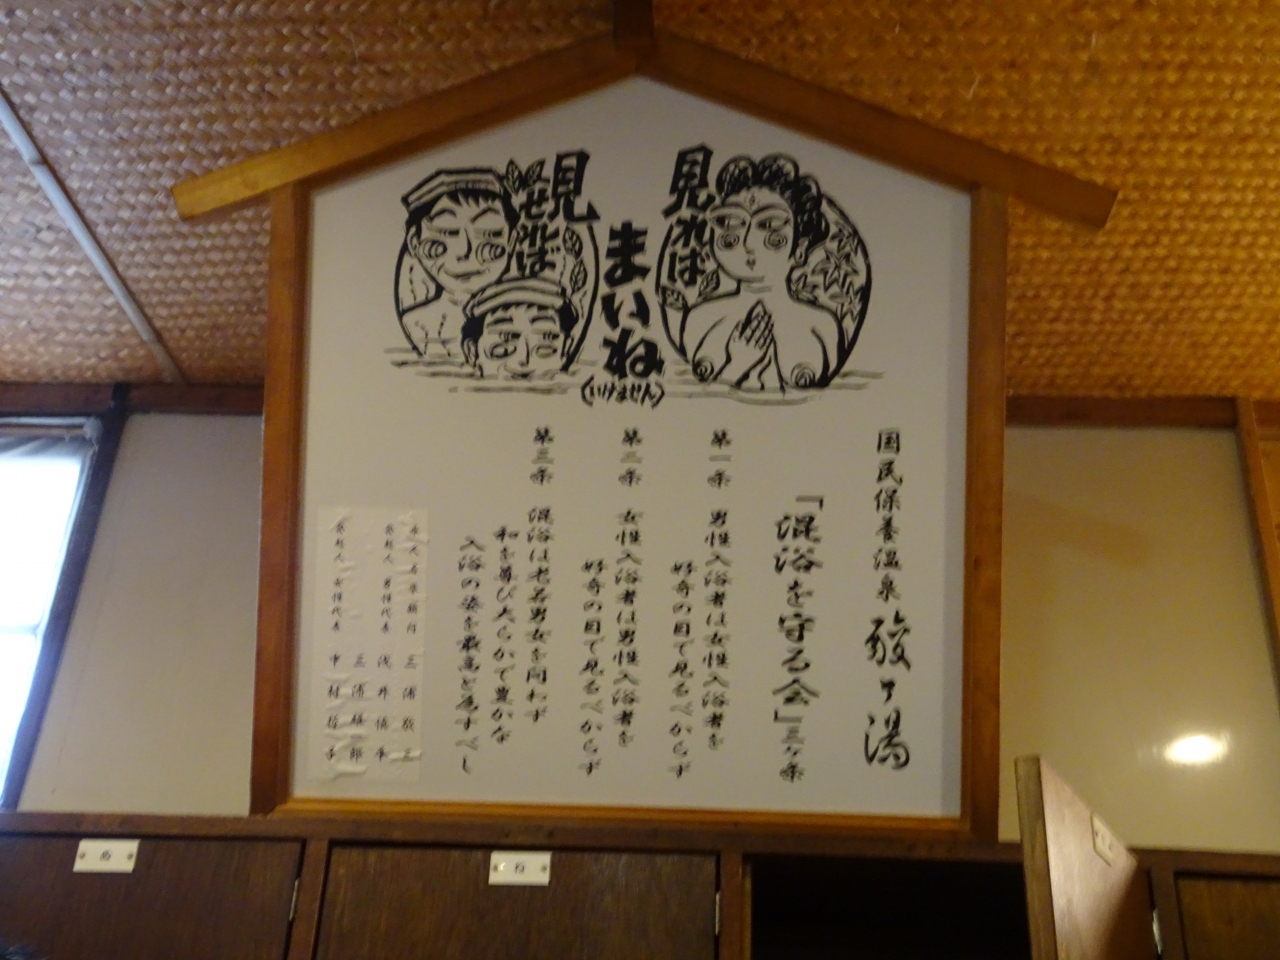 見れば
まいね
(いけません)
見せれば
国民保養温泉 酸ヶ湯
「混浴を守る会」三ヶ条
第一条 男性入浴者は女性入浴者を
好奇の目で見るべからず
第二条 女性入浴者は男性入浴者を
好奇の目で見るべからず
第三条 混浴は老若男女を問わず
和を尊び大らかで豊かな
入浴の姿を最高と為すべし
三浦敬三
発起人 男性代表 浅井慎平
三浦雄一郎
発起人 女性代表 中村
ぬ
ね